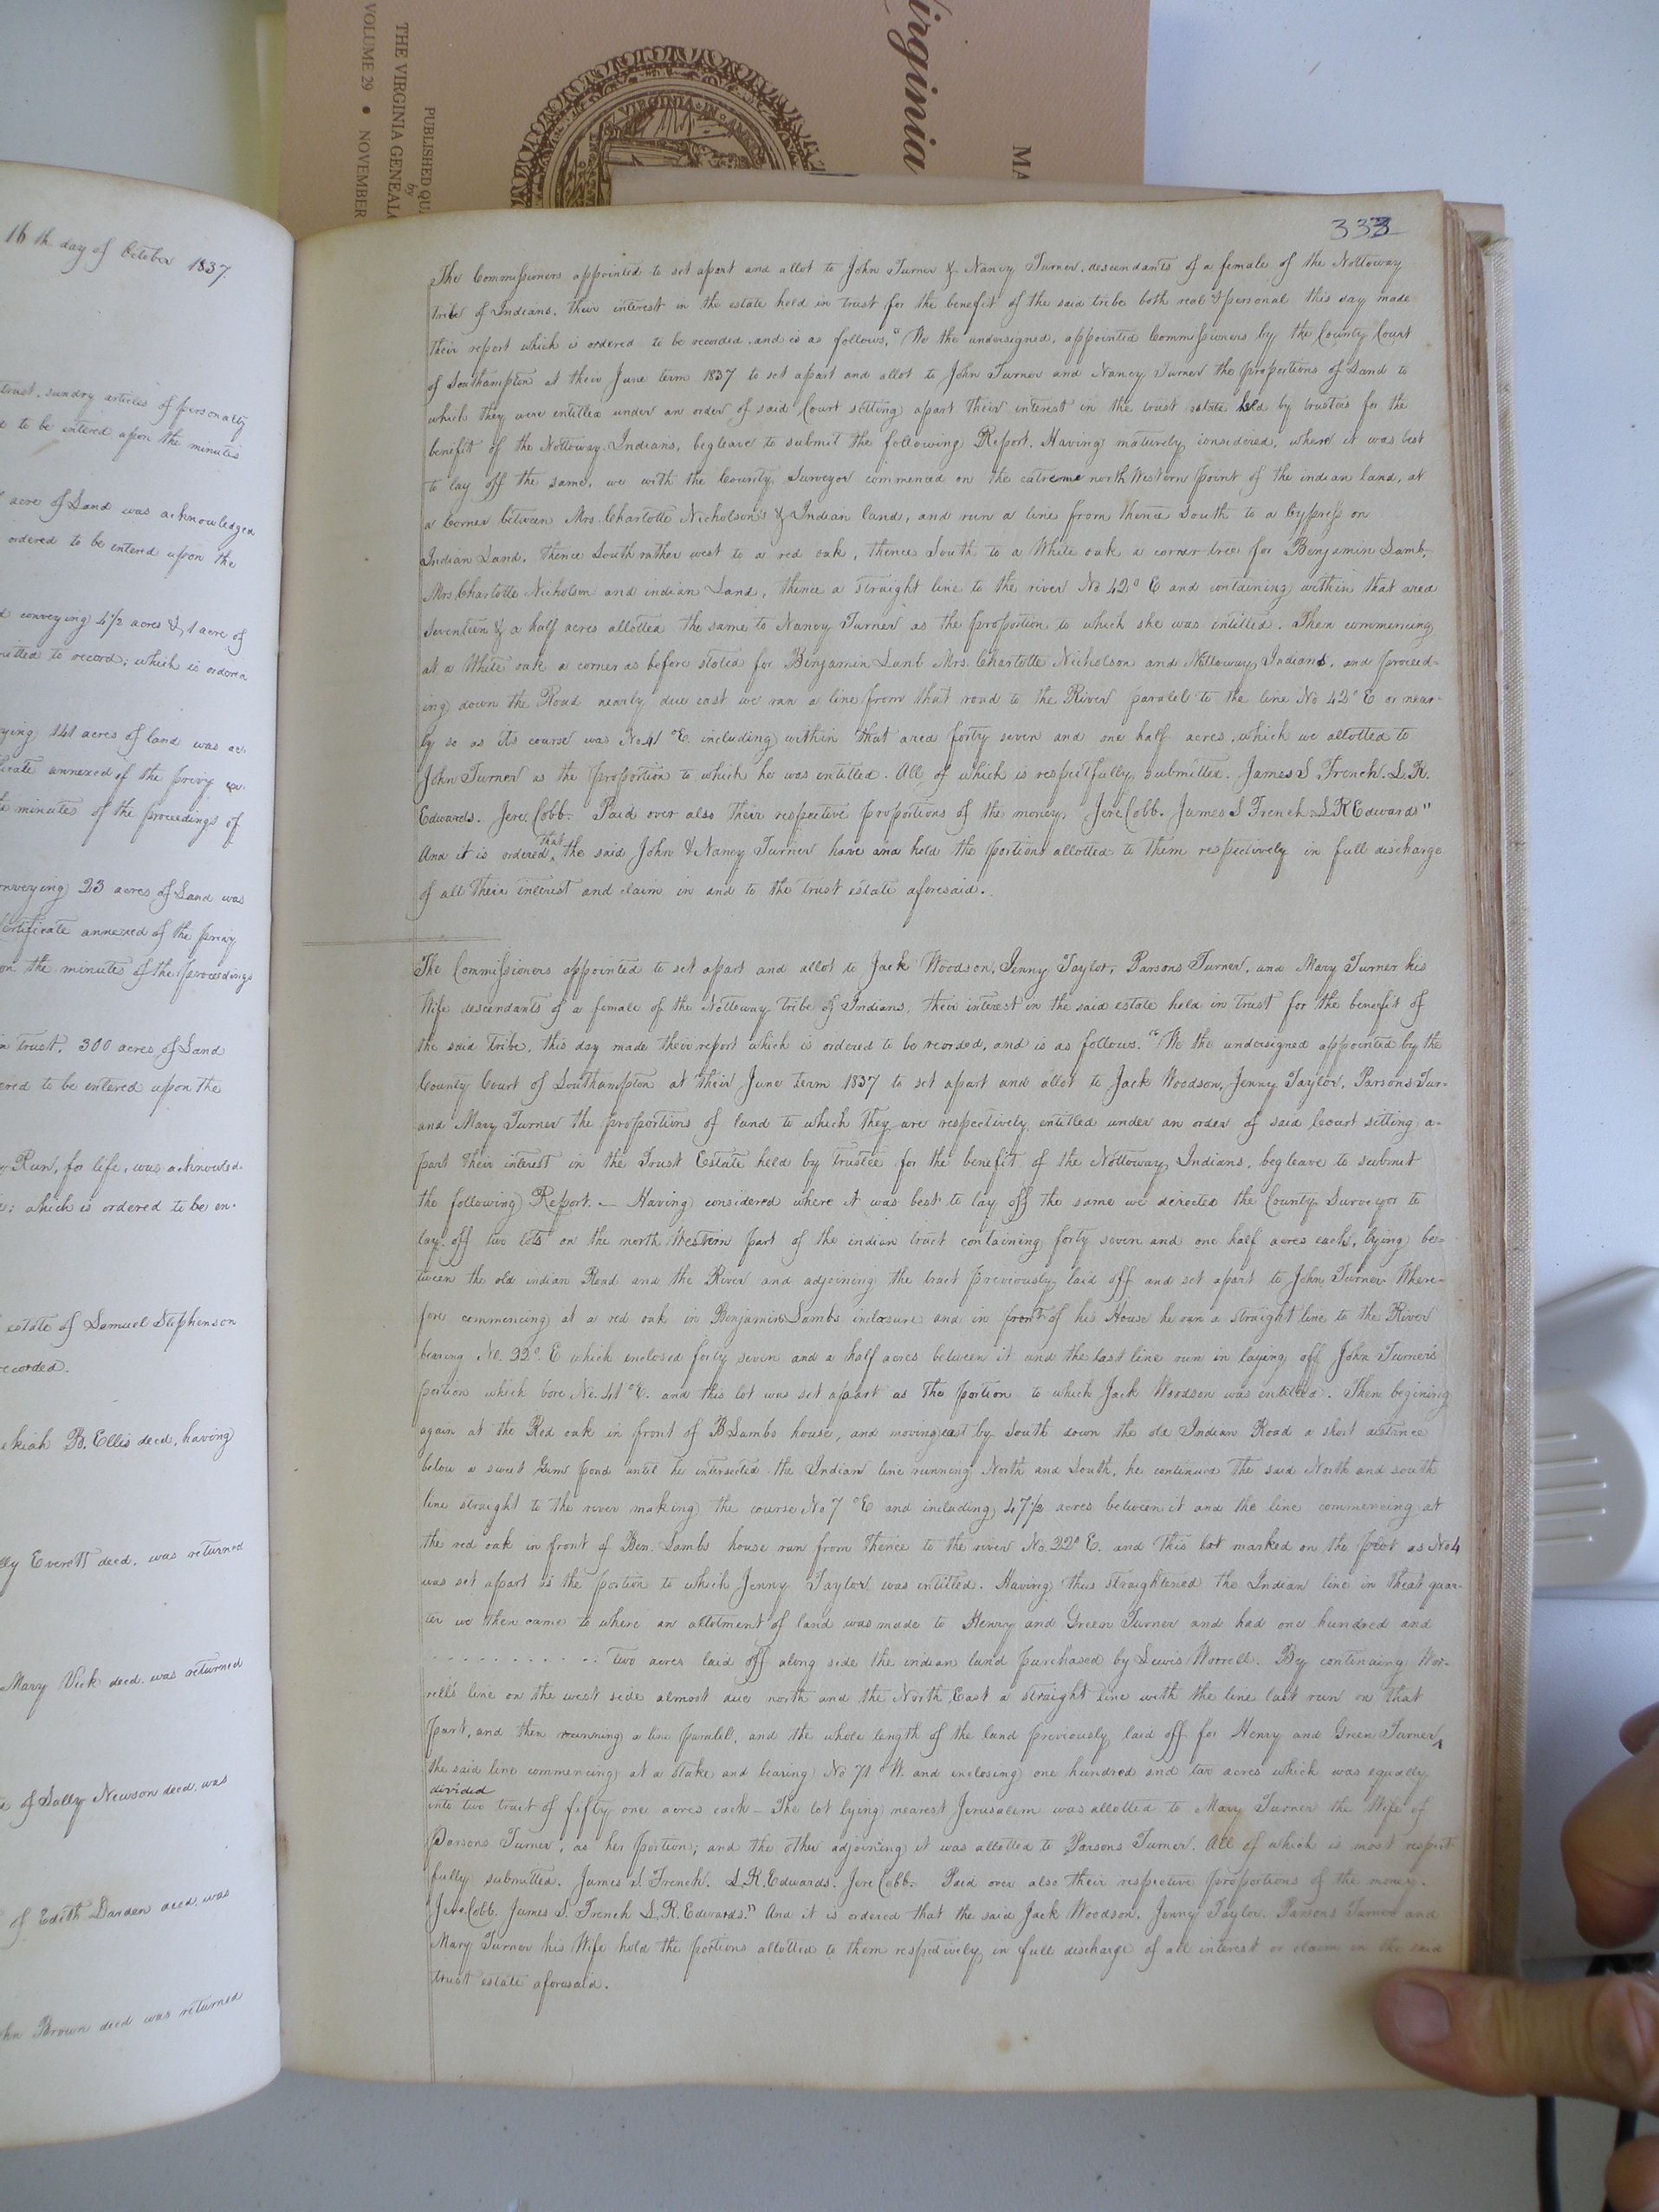 Virginia
MA
VIRGINIA
PUBLISHED QU
by
THE VIRGINIA GENEAL
VOLUME 29 • NOVEMBER
16th day of October 1837
trust, sundry articles of personalty
to be entered upon the minutes
acre of Land was acknowledged
ordered to be entered upon the
conveying 4½ acres & 1 acre of
mitted to record; which is ordered
ying 141 acres of land was ac-
ficate annexed of the privy ex-
minutes of the proceedings of
onveying 23 acres of Land was
Certificate annexed of the privy
on the minutes of the proceedings
n trust, 300 acres of Land
ered to be entered upon the
Run, for life, was acknowled-
: which is ordered to be en-
estate of Samuel Stephenson
recorded.
ekiah B. Ellis decd, having
lly Everett decd, was returned
Mary Vick decd. was returned
of Sally Newsom decd. was
of Edith Darden decd, was
ohn Brown decd was returned
333
The Commissioners appointed to set apart and allot to John Turner & Nancy Turner, descendants of a female of the Nottoway
tribe of Indians, their interest in the estate held in trust for the benefit of the said tribe both real & personal this day made
their report which is ordered to be recorded and is as follows, "We the undersigned, appointed Commissioners by the County Court
of Southampton at their June term 1837 to set apart and allot to John Turner and Nancy Turner the proportions of Land to
which they were entitled under an order of said Court setting apart their interest in the trust estate held by trustees for the
benefit of the Nottoway Indians, beg leave to submit the following Report. Having maturely considered, where it was best
to lay off the same, we with the County Surveyor commenced on the extreme north Western point of the indian land, at
a corner between Mrs. Charlotte Nicholson's & Indian land, and run a line from thence South to a Cypress on
Indian Land, thence South rather west to a red oak, thence South to a White oak a corner tree for Benjamin Lamb,
Mrs. Charlotte Nicholson and indian Land, thence a straight line to the river No 42° E and containing within that area
Seventeen & a half acres allotted the same to Nancy Turner as the proportion to which she was intitled. Then commencing
at a White oak a corner as before stated for Benjamin Lamb Mrs. Charlotte Nicholson and Nottoway Indians, and proceed-
ing down the Road nearly due east we ran a line from that road to the River paralel to the line No 42° E or near-
ly so as its course was No. 41 °E. including within that area forty seven and one half acres, which we allotted to
John Turner as the proportion to which he was intitled. All of which is respectfully submitted. James S French. L.R.
Edwards. Jere. Cobb. Paid over also their respective proportions of the money. Jere Cobb. James S French L R Edwards"
And it is ordered that the said John & Nancy Turner have and hold the portions allotted to them respectively in full discharge
of all their interest and claim in and to the trust estate aforesaid.
The Commissioners appointed to set apart and allot to Jack Woodson, Jenny Taylor, Parsons Turner, and Mary Turner his
Wife descendants of a female of the Nottoway tribe of Indians, their interest in the said estate held in trust for the benefit of
the said tribe, this day made their report which is ordered to be recorded, and is as follows. "We the undersigned appointed by the
County Court of Southampton at their June term 1837 to set apart and allot to Jack Woodson, Jenny Taylor, Parsons Tur-
and Mary Turner the proportions of land to which they are respectively entitled under an order of said Court setting a-
part their interest in the Trust Estate held by trustee for the benefit of the Nottoway Indians, beg leave to submit
the following Report. — Having considered where it was best to lay off the same we directed the County Surveyor to
lay off two lots on the north Western part of the indian tract containing forty seven and one half acres each, lying be-
tween the old indian Road and the River and adjoining the tract previously laid off and set apart to John Turner Where-
fore commencing at a red oak in Benjamin Lambs inclosure and in front of his House he ran a straight line to the River
bearing No. 32°. E which enclosed forty seven and a half acres between it and the last line run in laying off John Turner's
portion which bore No. 41°E. and this lot was set apart as the portion to which Jack Woodson was entitled. Then begining
again at the Red oak in front of B Lambs house, and moving east by South down the old Indian Road a short distance
below a sweet Gum pond until he intersected the Indian line running North and South, he continued the said North and south
line straight to the river making the course No 7 °E and including 47½ acres between it and the line commencing at
the red oak in front of Ben. Lambs house run from thence to the river No. 32° E. and this lot marked on the plot as No 4
was set apart as the portion to which Jenny Taylor was intitled. Having thus straightened the Indian line in that quar-
ter we then came to where an allotment of land was made to Henry and Green Turner and had one hundred and
. . . . . . . . . . . two acres laid off along side the indian land purchased by Lewis Worrell. By continuing Wor-
rell's line on the west side almost due north and the North East a straight line with the line last run on that
part, and then running a line paralel, and the whole length of the land previously laid off for Henry and Green Turner,
the said line commencing at a stake and bearing No 71 W. and enclosing one hundred and two acres which was equally
divided
into two tract of fifty one acres each — The lot lying nearest Jerusalem was allotted to Mary Turner the Wife of
Parsons Turner, as her portion; and the other adjoining it was allotted to Parsons Turner. All of which is most respect
fully submitted. James S. French. L.R. Edwards. Jere Cobb. Paid over also their respective proportions of the money.
Jere Cobb. James S. French L.R. Edwards." And it is ordered that the said Jack Woodson. Jenny Taylor. Parsons Turner and
Mary Turner his Wife hold the portions allotted to them respectively in full discharge of all interest or claim in the said
trust estate aforesaid.